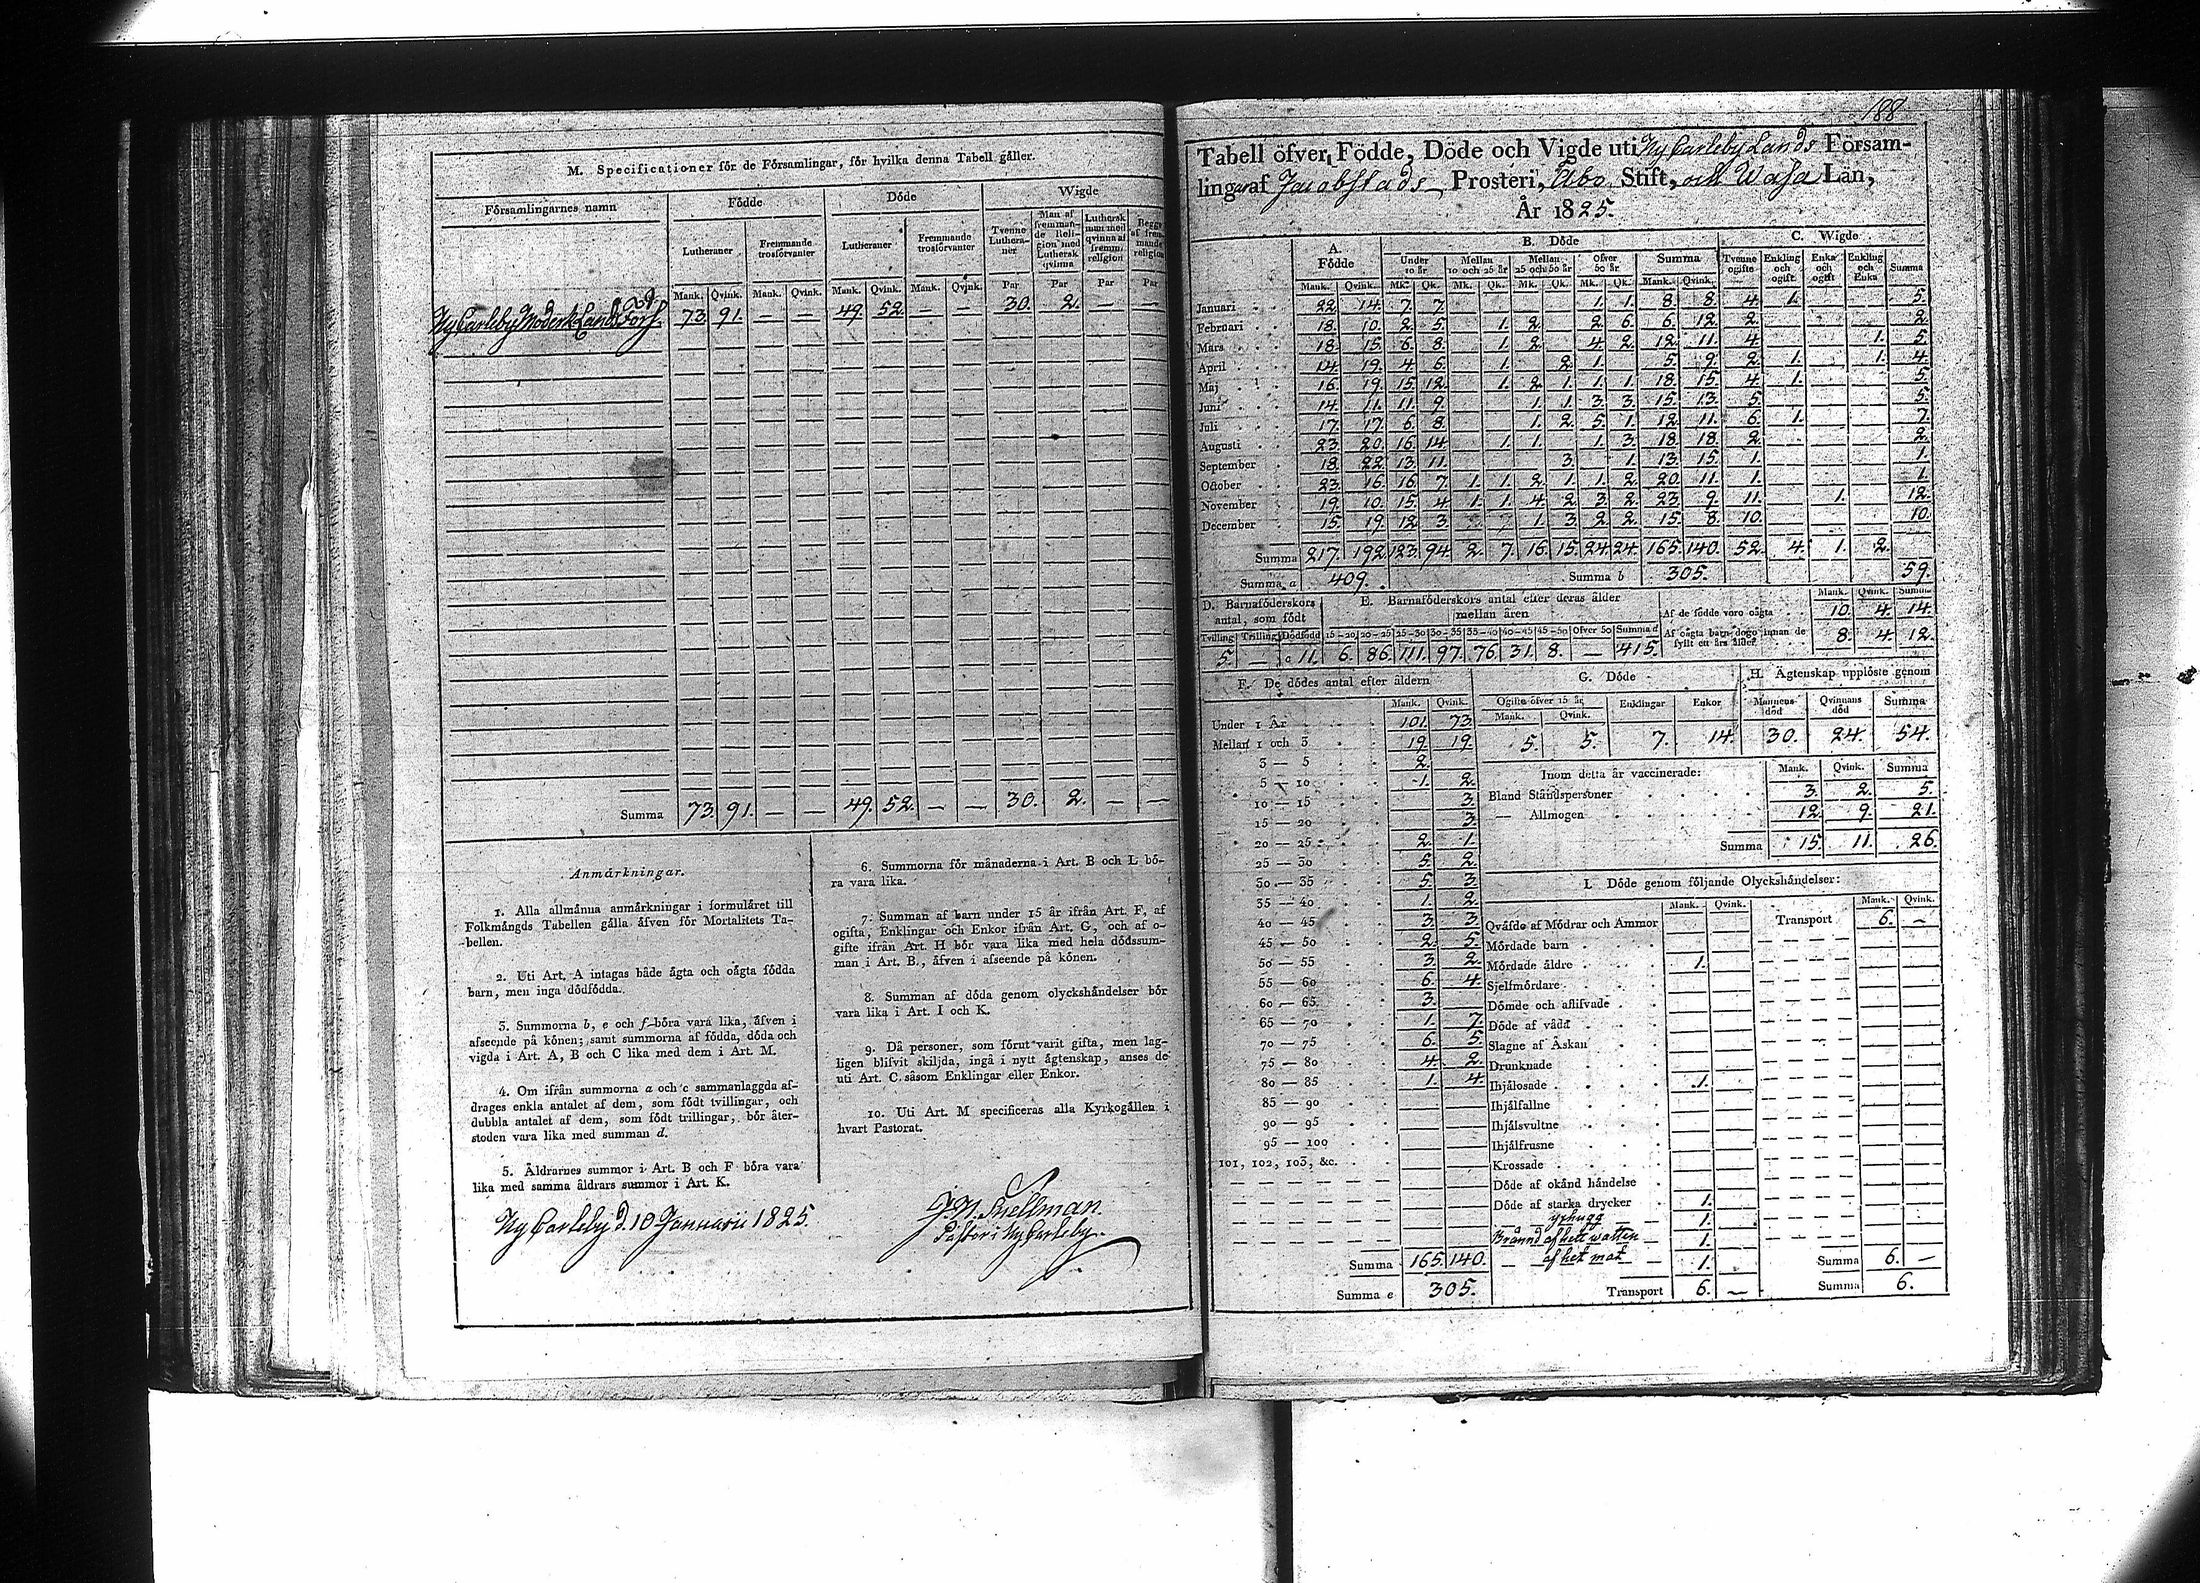 M. Specificationer för de Församlingar, för hvilka denna Tabell gäller.
Församlingarnes namn | Födde | Döde | Wigde
Lutheraner | Fremmande trosförvanter | Lutheraner | Fremmande trosförvanter | Tvenne Lutheraner | Man af fremmande Religion med Luthersk qvinna | Luthersk man med qvinna af fremm. religion | Begge af fremmande religion
Mank. Qvink. Mank. Qvink. Mank. Qvink. Mank. Qvink. Par Par Par Par
Ny Carleby Moderk Lands Förs. 73. 91. — — 49. 52. — — 30. 2. — —
Summa 73. 91. — — 49. 52. — — 30. 2. — —
Anmärkningar.
1. Alla allmänna anmärkningar i formuläret till
Folkmängds Tabellen gälla äfven för Mortalitets Ta-
bellen.
2. Uti Art. A intagas både ägta och oägta födda
barn, men inga dödfödda.
3. Summorna b, e och f böra vara lika, äfven i
afseende på könen; samt summorna af födda, döda och
vigda i Art. A, B och C lika med dem i Art. M.
4. Om ifrån summorna a och c sammanlaggda af-
drages enkla antalet af dem, som födt tvillingar, och
dubbla antalet af dem, som födt trillingar, bör åter-
stoden vara lika med summan d.
5. Åldrarnes summor i Art. B och F böra vara
lika med samma åldrars summor i Art. K.
Ny Carleby d. 10 Januarii 1825.
6. Summorna för månaderna i Art. B och L bö-
ra vara lika.
7. Summan af barn under 15 år ifrån Art. F, af
ogifta, Enklingar och Enkor ifrån Art. G, och af o-
gifte ifrån Art. H bör vara lika med hela dödssum-
man i Art. B., äfven i afseende på könen.
8. Summan af döda genom olyckshändelser bör
vara lika i Art. I och K.
9. Då personer, som förut varit gifta, men lag-
ligen blifvit skiljda, ingå i nytt ägtenskap, anses de
uti Art. C. såsom Enklingar eller Enkor.
10. Uti Art. M specificeras alla Kyrkogällen i
hvart Pastorat.
J. N. Snellman.
Pastor i Ny Carleby.
188
Tabell öfver Födde, Döde och Vigde uti Ny Carleby Lands Försam-
ling af Jacobstads Prosteri, Åbo Stift, och Wasa Län,
År 1825.
A. Födde | B. Döde | C. Wigde
Under 10 år | Mellan 10 och 25 år | Mellan 25 och 50 år | Öfver 50 år | Summa | Tvenne ogifte | Enkling och ogift | Enka och ogift | Enkling och Enka | Summa
Mank. Qvink. Mk. Qk. Mk. Qk. Mk. Qk. Mk. Qk. Mank. Qvink.
Januari 22. 14. 7. 7. 1. 1. 8. 8. 4. 1. 5.
Februari 18. 10. 2. 5. 1. 2. 2. 6. 6. 12. 2. 2.
Mars 18. 15. 6. 8. 1. 2. 4. 2. 12. 11. 4. 1. 5.
April 14. 19. 4. 6. 1. 2. 1. 5. 9. 2. 1. 1. 4.
Maj 16. 19. 15. 12. 1. 2. 1. 1. 1. 18. 15. 4. 1. 5.
Juni 14. 11. 11. 9. 1. 1. 3. 3. 15. 13. 5. 5.
Juli 17. 17. 6. 8. 1. 2. 5. 1. 12. 11. 6. 1. 7.
Augusti 23. 20. 16. 14. 1. 1. 1. 3. 18. 18. 2. 2.
September 18. 22. 13. 11. 3. 1. 13. 15. 1. 1.
October 23. 16. 16. 7. 1. 1. 2. 1. 1. 2. 20. 11. 1. 1.
November 19. 10. 15. 4. 1. 1. 4. 2. 3. 2. 23. 9. 11. 1. 12.
December 15. 19. 12. 3. 1. 3. 2. 2. 15. 8. 10. 10.
Summa 217. 192. 123. 94. 2. 7. 16. 15. 24. 24. 165. 140. 52. 4. 1. 2.
Summa a 409. Summa b 305. 59.
D. Barnaföderskors antal, som födt
Tvilling Trilling Dödfödd
5. — 11.
E. Barnaföderskors antal efter deras ålder mellan åren
15-20 20-25 25-30 30-35 35-40 40-45 45-50 Öfver 50 Summa d
6. 86. 111. 97. 76. 31. 8. — 415.
Mank. Qvink. Summa
Af de födde voro oägta 10. 4. 14.
Af oägta barn dogo innan de fyllt ett års ålder 8. 4. 12.
F. De dödes antal efter åldern
Mank. Qvink.
Under 1 År 101. 73.
Mellan 1 och 3 19. 19.
3 — 5 2.
5 — 10 1. 2.
10 — 15 3.
15 — 20 3.
20 — 25 2. 1.
25 — 30 5. 2.
30 — 35 5. 3.
35 — 40 1. 2.
40 — 45 3. 3.
45 — 50 2. 5.
50 — 55 3. 2.
55 — 60 6. 4.
60 — 65 3.
65 — 70 1. 7.
70 — 75 6. 5.
75 — 80 4. 2.
80 — 85 1. 4.
85 — 90
90 — 95
95 — 100
101, 102, 103, &c.
Summa 165. 140.
Summa e 305.
G. Döde
Ogifte öfver 15 år | Enklingar | Enkor
Mank. Qvink.
5. 5. 7. 14.
H. Ägtenskap upplöste genom
Mannens död | Qvinnans död | Summa
30. 24. 54.
Inom detta år vaccinerade: Mank. Qvink. Summa
Bland Ståndspersoner 3. 2. 5.
— Allmogen 12. 9. 21.
Summa 15. 11. 26.
I. Döde genom följande Olyckshändelser:
Mank. Qvink.
Qväfde af Mödrar och Ammor
Mördade barn
Mördade äldre 1.
Sjelfmördare
Dömde och aflifvade
Döde af våda
Slagne af Åskan
Drunknade
Ihjälosade 1.
Ihjälfallne
Ihjälsvultne
Ihjälfrusne
Krossade
Döde af okänd händelse
Döde af starka drycker 1.
— yxhugg — 1.
Bränd af hett watten — 1.
— af het mat — 1.
Transport 6. —
Mank. Qvink.
Transport 6. —
Summa 6. —
Summa 6.